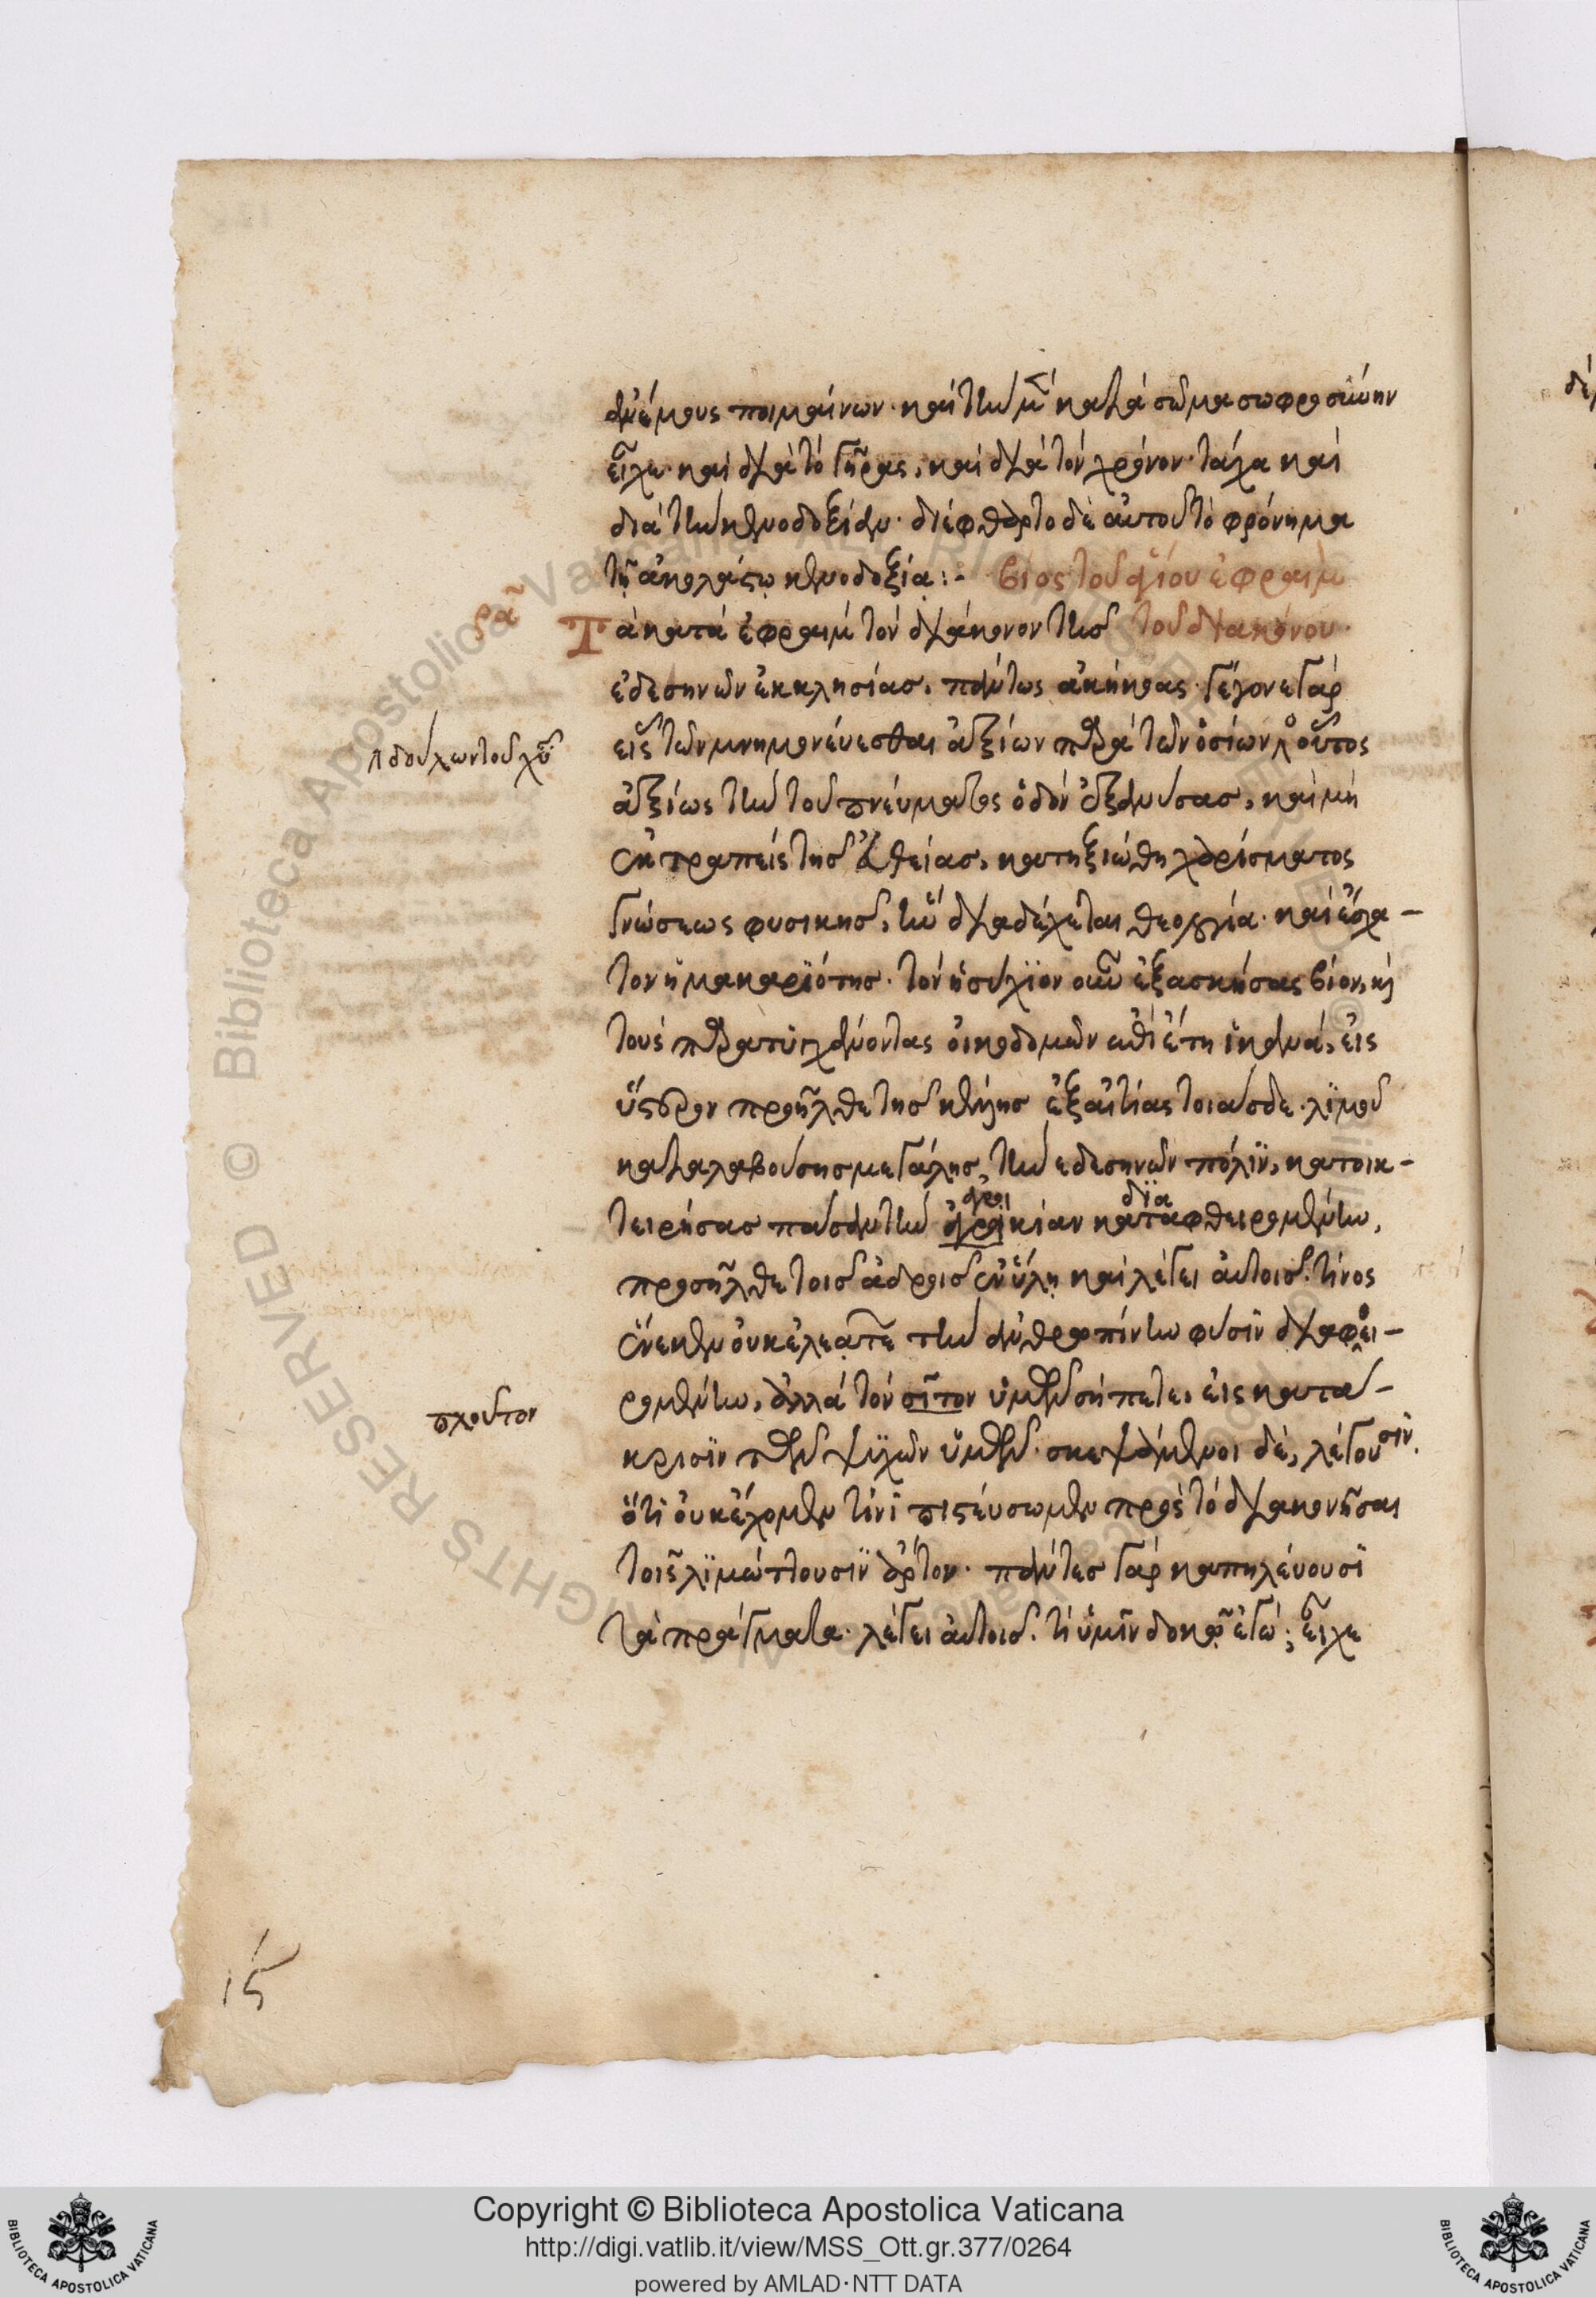 ἀνέμους ποιμαίνων· καὶ τὴν μὲν κατὰ σῶμα σωφροσύνην
εἶχε· καὶ διὰ τὸ γῆρας, καὶ διὰ τὸν χρόνον· τάχα καὶ
διὰ τὴν κενοδοξίαν· διέφθαρτο δὲ αὐτοῦ τὸ φρόνημα
τῇ ἀκολάστῳ κενοδοξίᾳ:- βίος τοῦ ἁγίου ἐφραὶμ
ρα Τὰ κατὰ ἐφραιμ τὸν διάκονον τῆς τοῦ διακόνου·
ἐδεσηνῶν ἐκκλησίας, πάντως ἀκήκοας· γέγονε γὰρ
εἷς τῶν μνημονεύεσθαι ἀξίων παρὰ τῶν ὁσίων οὗτος
ἀξίως τὴν τοῦ πνεύματος ὁδὸν ἐξανύσας, καὶ μὴ
ἐκτραπεὶς τῆς εὐθείας, κατηξιώθη χαρίσματος
γνώσεως φυσικῆς, ἣν διαδέχεται θεολογία· καὶ ἔσχα-
τον ἡ μακαριότης· τὸν ἡσύχϊον οὖν ἐξασκήσας βίον, κὶ
τοὺς παρατυγχάνοντας οἰκοδομῶν ἐπὶ ἔτη ἱκανά, εἰς
ὕστερον προῆλθε τῆς κέλλης ἐξ αἰτίας τοιᾶσδε· λϊμοῦ
καταλαβούσης μεγάλης, τὴν εδεσηνῶν πόλϊν, κατοικ-
τειρήσας πᾶσαν τὴν κίαν καταφθειρομένην,
δϊα
προσῆλθε τοῖς ἁδροῖς ἐν ὕλῃ καὶ λέγει αὐτοῖς· τίνος
ἕνεκεν οὐκ ἐλεᾶτε τὴν ἀνθρωπίνην φύσϊν διαφθει-
ρομένην, ἀλλὰ τὸν σῖτον ὑμῶν σήπετε, εἰς κατά-
κρισϊν τῶν ψυχῶν ὑμῶν· σκεψάμενοι δὲ, λέγουσϊν.
ὅτι οὐκ ἔχομεν τίνϊ πϊστεύσωμεν πρὸς τὸ διακονῆσαι
τοῖς λϊμώττουσϊν ἄρτον· πάντες γὰρ καπηλεύουσϊ
τὰ πράγματα· λέγει αὐτοῖς· τί ὑμῖν δοκῶ ἐγώ; εἶχε
πλουτον
ις
Copyright © Biblioteca Apostolica Vaticana
http://digi.vatlib.it/view/MSS_Ott.gr.377/0264
powered by AMLAD·NTT DATA
BIBLIOTECA APOSTOLICA VATICANA
BIBLIOTECA APOSTOLICA VATICANA